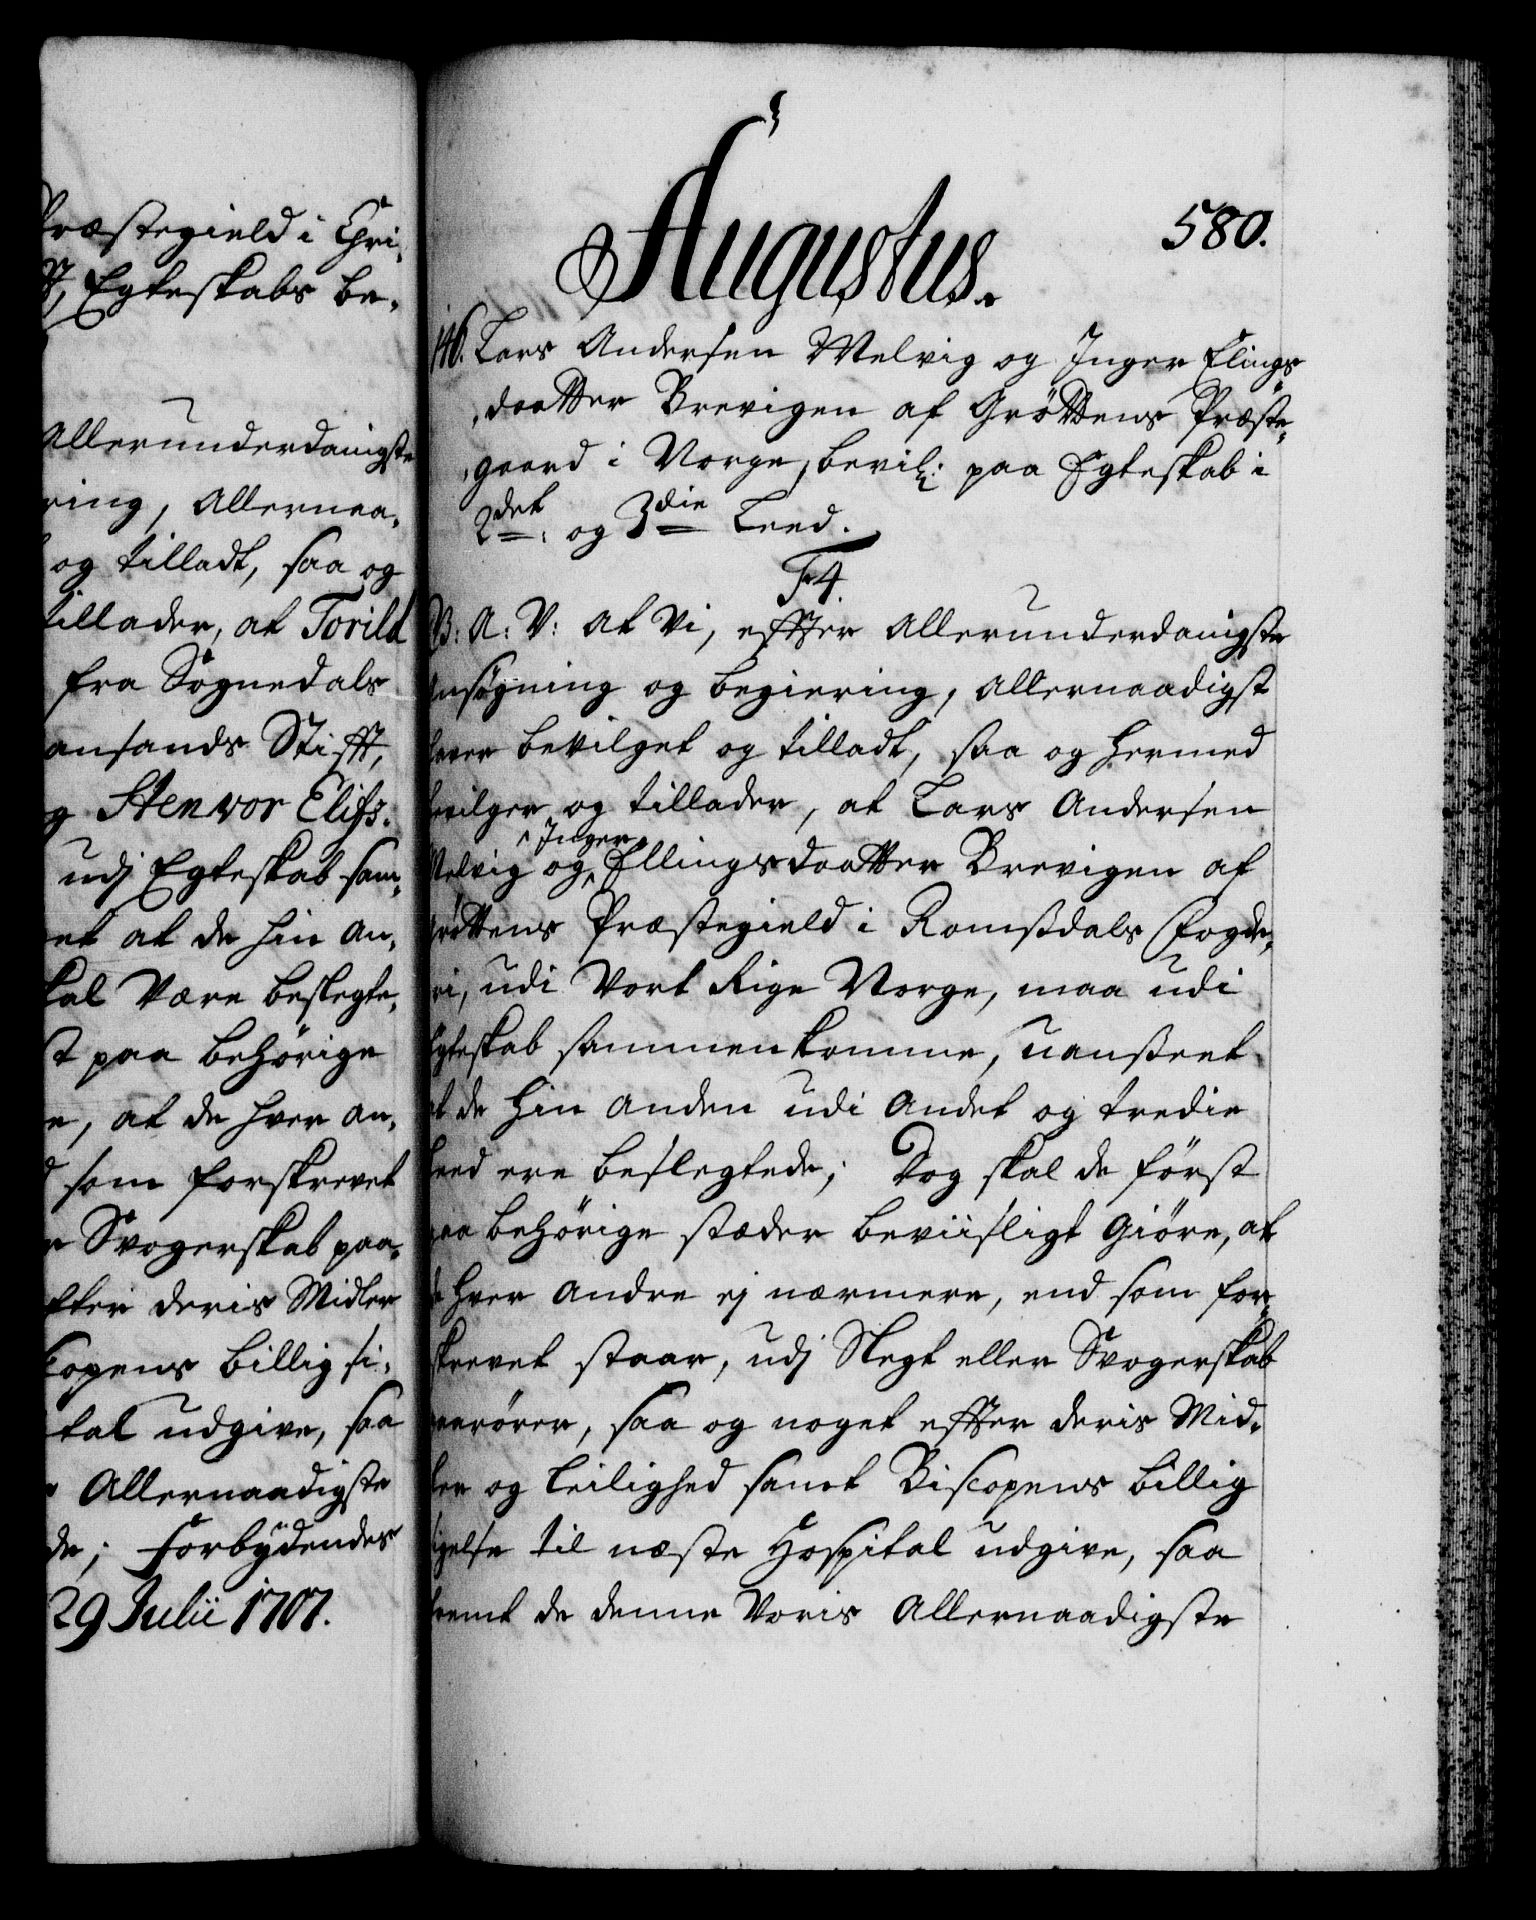 Præstegield i Chri-
Egteskabs be-
Allerunderdanigste
ring, Allernaa-
og tilladt, saa og
tillader, at Torild
fra Sognedals
ansands Stifft,
Stenvor Elifs-
udj Egteskab sam-
et at de hin an-
skal Være beslegte,
paa behörige
at de hver an-
som forskrevet
Svogerskab paa-
deris Midler
copens billig si-
tal udgive, saa
Allernaadigste
de; Forbydendes
29 Julii 1707.
580.
Augustus.
146. Lars Andersen Melvig og Inger Elings
daatter Brevigen af Gröttens Præste-
gaard i Norge, bevil: paa Egteskab i
2det: og 3die Leed.
F4.
V: A: V: At Vi, effter Allerunderdanigste
Ansögning og begiering, Allernaadigst
haver bevilget og tilladt, saa og hermed
bevilger og tillader, at Lars Andersen
Inger
Melvig og Ellingsdaatter Brevigen af
Gröttens Præstegield i Romsdals Fogde-
ri, udi Vort Rige Norge, maa udi
Egteskab sammenkomme, uanseet
at de hin anden udi andet og tredie
Leed ere beslegtede; Dog skal de först
paa behörige stæder beviisligt giöre, at
de hver andre ej nærmere, end som for-
skrevet staar, udj Slegt eller Svogerskab
paarörer, saa og noget effter deris Mid-
ler og leilighed samt Biscopens billig
sigelse til næste Hospital udgive, saa
fremt de denne Voris Allernaadigste